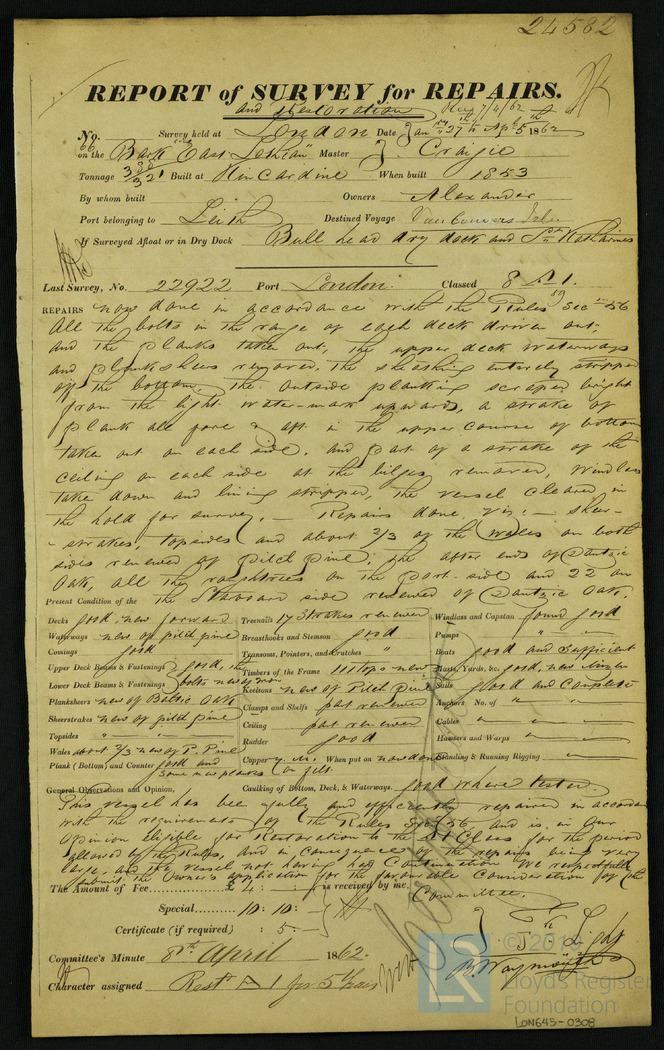 24582
REPORT of SURVEY for REPAIRS.
and Restoration
No. Survey held at London Date Jany 27th to Apl 5th 1862
on the Bark East Lothian Master J. Craigie
Tonnage 330/321 Built at Kincardine When built 1853
By whom built Owners Alexander
Port belonging to Leith Destined Voyage Vancouvers Isle.
If Surveyed Afloat or in Dry Dock Bull head dry dock and St Katharines
Last Survey, No. 22922 Port London. Classed 8 A 1.
REPAIRS now done in accordance with the Rules Secn 56
All the bolts in the range of each deck driven out,
and the planks taken out, the upper deck waterways
and planksheers removed, the sheathing entirely stripped
off the bottom, the outside planking scraped bright
from the light water-mark upwards, a strake of
plank all fore & aft in the upper course of bottom
taken out on each side, and part of a strake of the
ceiling on each side at the bilges removed, Windlass
taken down and lining stripped, the vessel cleared in
the hold for survey. — Repairs done viz: — sheer-
-strakes, topsides and about 2/3 of the Wales on both
sides renewed of pitch pine, the after ends of Dantzic
Oak, all the roughtrees on the Port side and 22 on
the Starboard side renewed of Dantzic Oak.
Present Condition of the
Decks good, new forward Treenails 17 Strakes renewed Windlass and Capstan found good
Waterways new of pitch pine Breasthooks and Stemson good Pumps " "
Comings good Transoms, Pointers, and Crutches " Boats good and sufficient
Upper Deck Beams & Fastenings good, the Timbers of the Frame 111 tops new Masts, Yards, &c. good, new
Lower Deck Beams & Fastenings bolts new of iron Keelsons new of Pitch Pine Sails good and Complete
Planksheers new of Baltic Oak Clamps and Shelfs part renewed Anchors No. of " "
Sheerstrakes new of pitch pine Ceiling part renewed Cables " "
Topsides " " Rudder good Hawsers and Warps " "
Wales about 2/3 new of P. Pine Copper y.M. When put on now done Standing & Running Rigging
Plank (Bottom) and Counter good and some new planks on felt.
General Observations and Opinion, Caulking of Bottom, Deck, & Waterways. good where tested.
This vessel has been fully and efficiently repaired in accordance
with the requirements of the Rules Secn 56 and is in our
Opinion eligible for Restoration to the A1 Class for the period
allowed by the Rules, and in consequence of the repairs being very
large, and the vessel not having had Continuation We respectfully
submit the Owner's application for the favourable Consideration of the
Committee.
The Amount of Fee £ 4 : – : – is received by me,
Special 10 : 10 : –
Certificate (if required) : 5 : –
Committee's Minute 8th April 1862.
Character assigned Restd A 1 for 5 Years
Light
B Waymouth
© 2019
Lloyd's Register
Foundation
LON645-0308